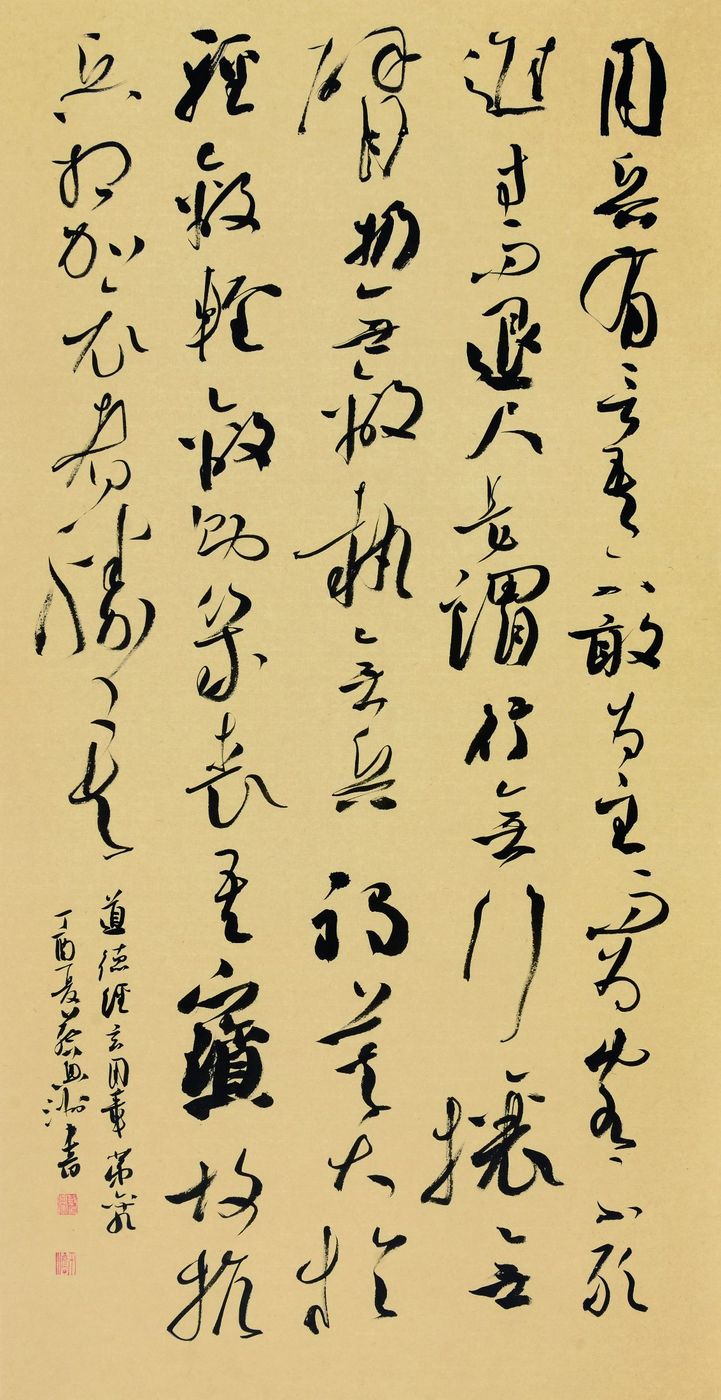 用兵有言吾不敢為主而為客不敢
進寸而退尺是謂行無行攘無
臂扔無敵執無兵禍莫大於
輕敵輕敵則幾喪吾寶故抗
兵相加哀者勝矣
道德經玄用章第六九
丁酉夏蔡洲書